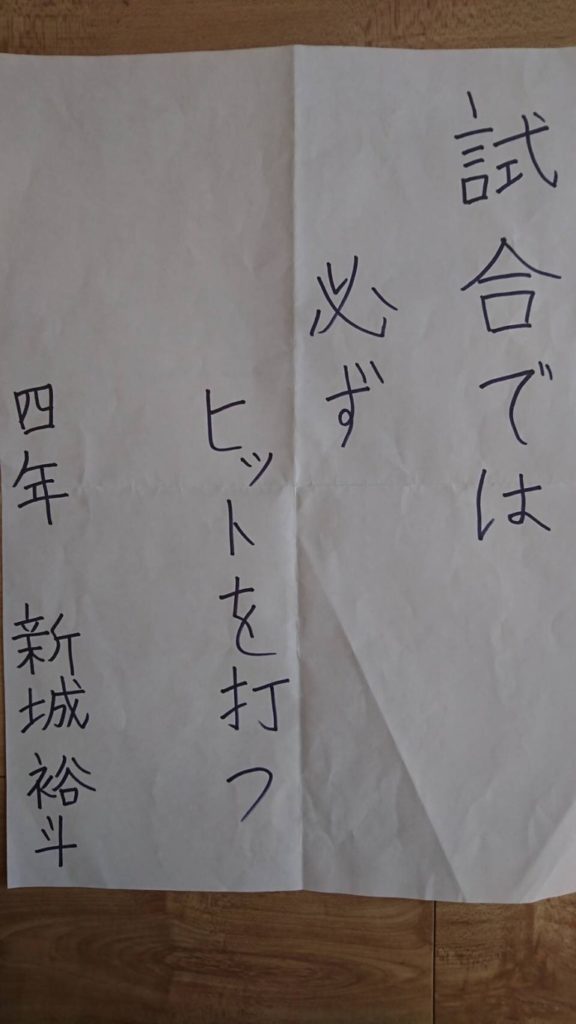 試合では
必ず
ヒットを打つ
四年 新城裕斗